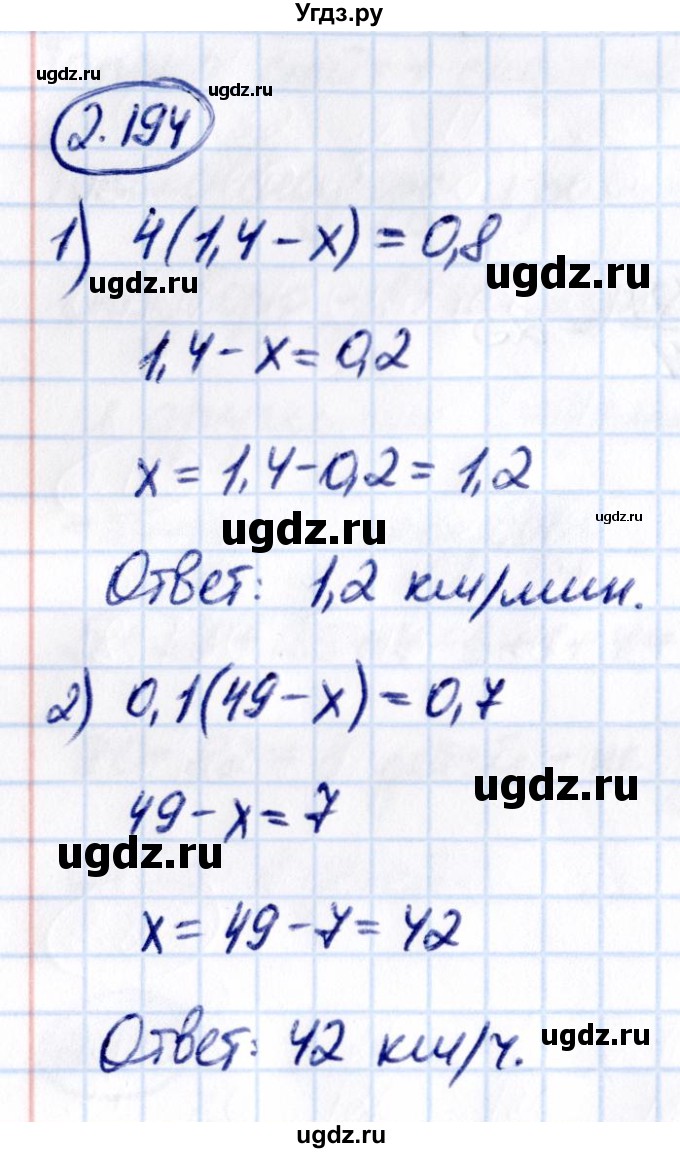 Угдз.ру
ugdz.ru
ugdz.ru
2.194
1) 4(1,4-x)=0,8
ugdz.ru
ugdz.ru
1,4-x=0,2
x=1,4-0,2=1,2
ugdz.ru
ugdz.ru
Ответ: 1,2 км/мин.
2) 0,1(49-x)=0,7
ugdz.ru
49-x=7
ugdz.ru
x=49-7=42
Ответ: 42 км/ч.
ugdz.ru
ugdz.ru